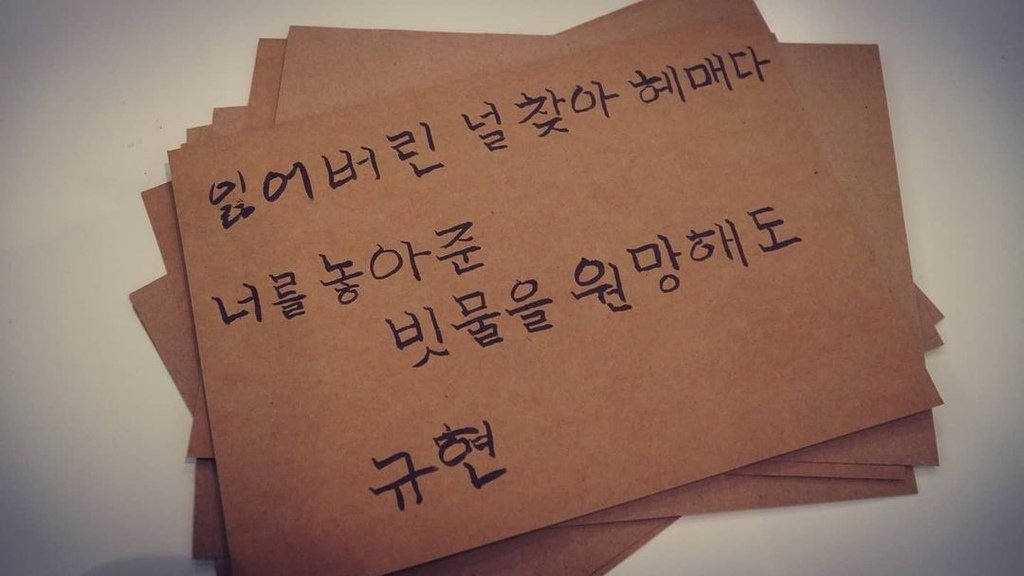 잃어버린 널 찾아 헤매다
너를 놓아준
빗물을 원망해도
규현